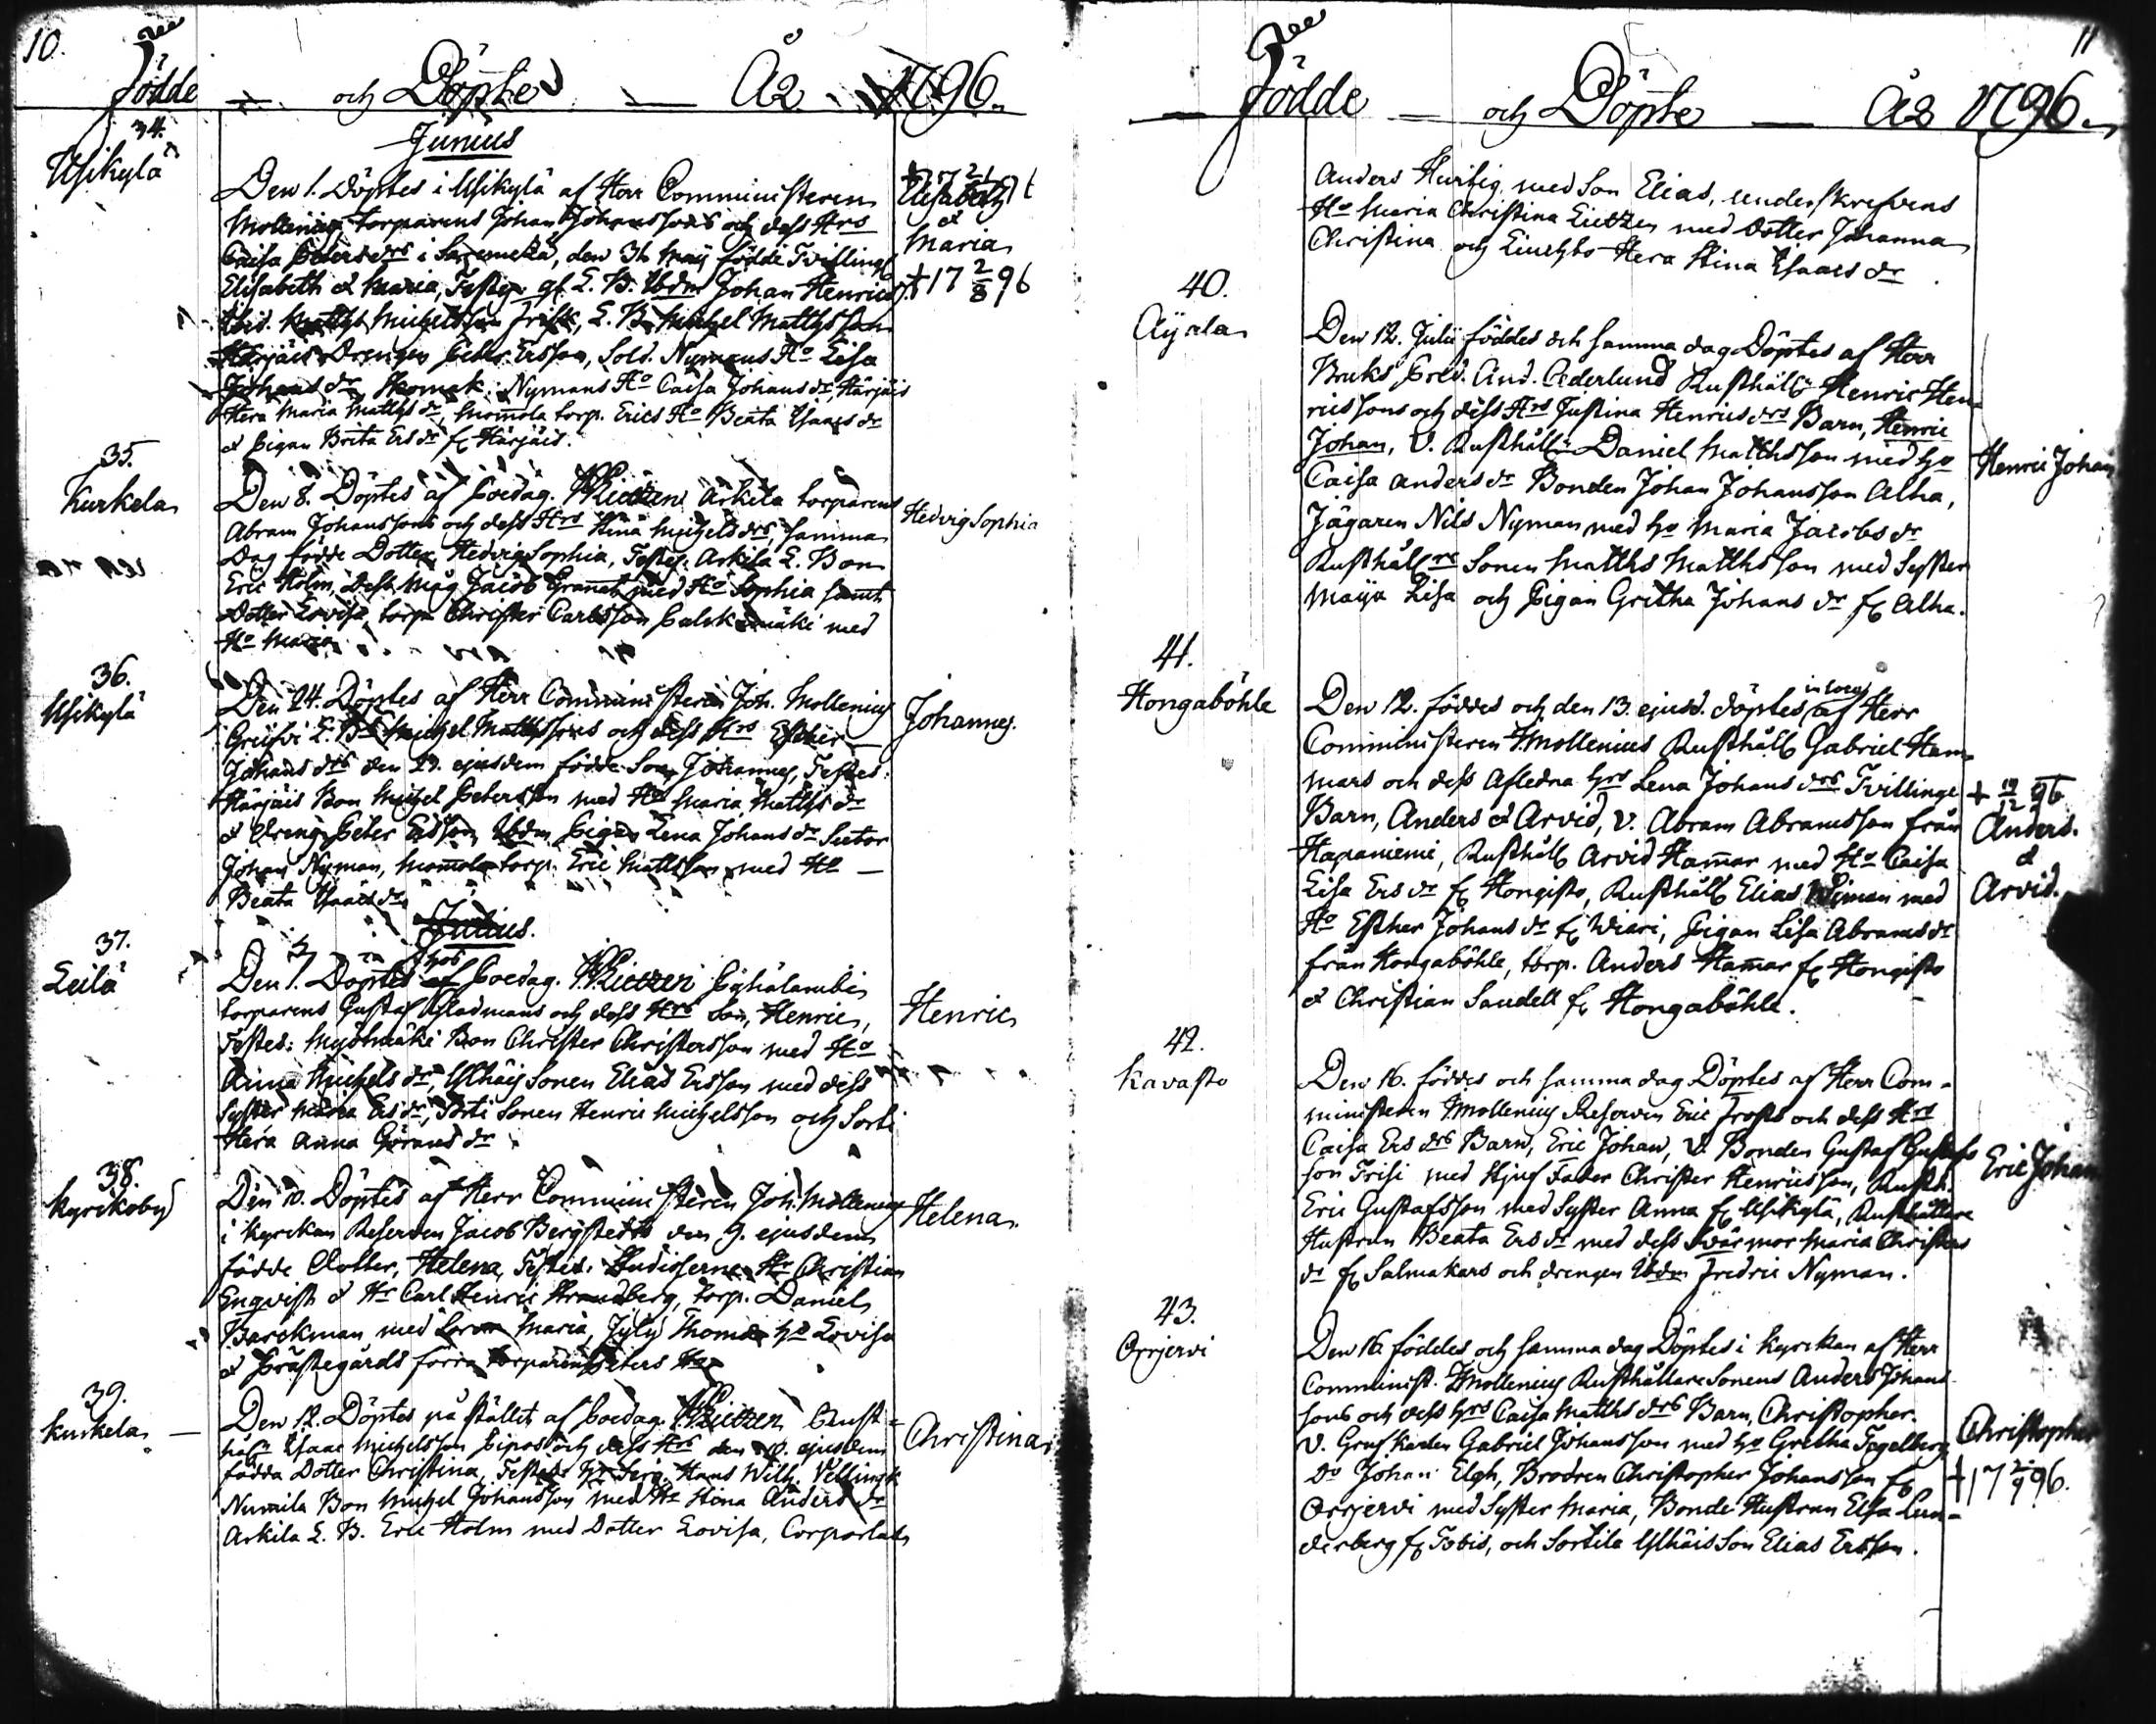 10.
Födde — och Döpte — År 1796.
Junius
34.
Usikylä
Den 1. Döptes i Usikylä af Herr Communisteren
Mollenius, torparens Johan Johanssons och dess Hrs
Caisa Petersdrs i, den 31 Maij födde Tvilling
Elisabeth & Maria, Testes. E. B. Ibdm Johan Henrics
Ibid. Matths Michelsson Frisk, E. B. Michel Matthsson
Härjäis Drengen Peter Ersson, Sold. Nymans Ho Lisa
Johans dr, Skomak. Nymans Ho Caisa Johans dr, Härjäis
Hera Maria Matths dr, Mom̄ola torp. Erics Ho Beata Isaacs dr
& Pigan Brita Ers dr fr Härjäis.
Elisabeth
&
Maria
+ 17 2/8 96
35.
Kurkela
Den 8. Döptes af Poedag. Lietzen Arkila torparens
Abram Johanssons och dess Hrs Stina Michelsdrs, samma
Dag födde Dotter Hedvig Sophia, Testes. Arkila E. Bon
Eric Holm, dess Måg Jacob Gran̄at med Ho Sophia samt
Dotter Lovisa, torp. Christer Carlsson med
Ho Maria
Hedvig Sophia
36.
Usikylä
Den 24. Döptes af Herr Communisteren Joh. Mollenius
E. Bs Michel Matthssons och dess Hrs Esther
Johans drs den 23. ejusdem födde Son Johannes, Testes:
Härjäis Bon Michel Petersson med Ho Maria Matths dr
& dreng. Peter Ersson, Ibdm Pigan Lena Johans dr Sutor
Johan Nyman, Mom̄ola torp. Eric Mattsson med Ho —
Beata Isaacs dr
Johannes.
Julius.
37.
Leilä
Den 1. Döptes af Poedag. Lietzen
torparens Gustaf Gladmans och dess Hrs Son, Henric,
Testes: Myöhmäki Bon Christer Christersson med Ho
Anna Michels dr, Ylhäis Sonen Elias Ersson med dess
Syster Maria Ers dr, Sorti Sonen Henric Michelsson och Sorti
Hera Anna Görans dr
Henric
38.
Kyrkoby
Den 10. Döptes af Herr Communisteren Joh. Mollenius
i Kyrckan Reserven Jacob Bergstedts den 9. ejusdem
födde Dotter, Helena, Testes: Studioserne Hr Christian
Enqvist & Hr Carl Henric Strandberg, torp. Daniel
Barckman med Maria, Jyly Thomas Ho Lovisa
& Prästegårds förra torparen Peters Ho
Helena.
39.
Kurkela —
Den 12. Döptes på stället af Poedag. Lietzen Rust=
håls Isaac Michelsson Pipos och dess Hrs den 10. ejusdem
födda Dotter Christina, Testes: Hr Serg. Hans Wilh. Vellingk
Numila Bon Michel Johansson med Ho Stina Anders dr
Arkila E. B. Eric Holm med Dotter Lovisa, Corporlats
Christina
11
Födde — och Döpte — År 1796.
Anders Hurtig med Son Elias, underskrefvens
Ho Maria Christina Lietzen med Dotter Johanna
Christina och Hera Stina Isaacs dr
40.
Aÿala
Den 12. Julii föddes och samma dag Döptes af Herr
Bruks Pred. And. Cederlund Rusthåll. Henric Hen=
ricssons och dess Hrs Justina Henricsdrs Barn, Henric
Johan, V. Rusthåll. Daniel Matthsson med Ho
Caisa Anders dr Bonden Johan Johansson Alha,
Jägaren Nils Nyman med Ho Maria Jacobs dr
Rusthåll. Sonen Matths Matthsson med Syster
Maija Lisa och Pigan Gretha Johans dr fr Alha.
Henric Johan
41.
Hongaböhle
Den 12. föddes och den 13. ejusd. döptes af Herr
Comministeren J. Mollenius Rusthåll. Gabriel Ham
mars och dess Afledna Hrs Lena Johans drs Tvillinge
Barn, Anders & Arvid, V. Abram Abramsson från
Hapaniemi, Rusthåll. Arvid Ham̄ar med Ho Caisa
Lisa Ers dr fr Hongisto, Rusthåll. Elias Wiman med
Ho Esther Johans dr fr Wiari, Pigan Lisa Abrams dr
från Hongaböhle, torp. Anders Ham̄ar fr Hongisto
& Christian Sandell fr Hongaböhle.
+ 19/12 96
Anders.
&
Arvid.
42.
Kavasto
Den 16. föddes och samma dag Döptes af Herr Com-
ministeren J. Mollenius Reserven Eric Frosts och dess Hrs
Caisa Ers drs Barn, Eric Johan, V. Bonden Gustaf Gustafs
son Frisi med Stjuf Fader Christer Henricsson, Rusth.
Eric Gustafsson med Syster Anna fr Usikylä, Rusthållare
Hustrun Beata Ers dr med dess Svär mor Maria Christers
dr fr Salmakars och drengen Ibdm Fredric Nyman.
Eric Johan
43.
Orrjervi
Den 16. föddes och samma dag Döptes i Kyrckan af Herr
Comminist. J. Mollenius Rusthållare Sonens Anders Johans
sons och dess Hrs Caisa Matths drs Barn, Christopher.
V. Grufkarlen Gabriel Johansson med Ho Gretha Fagelberg
Do Johan Elgh, Brodren Christopher Johansson fr
Orrjervi med Syster Maria, Bonde Hustrun Elsa Lun-
derberg fr Tobis, och Sortila Ylhäis Son Elias Ersson.
Christopher
+ 17 2/9 96.